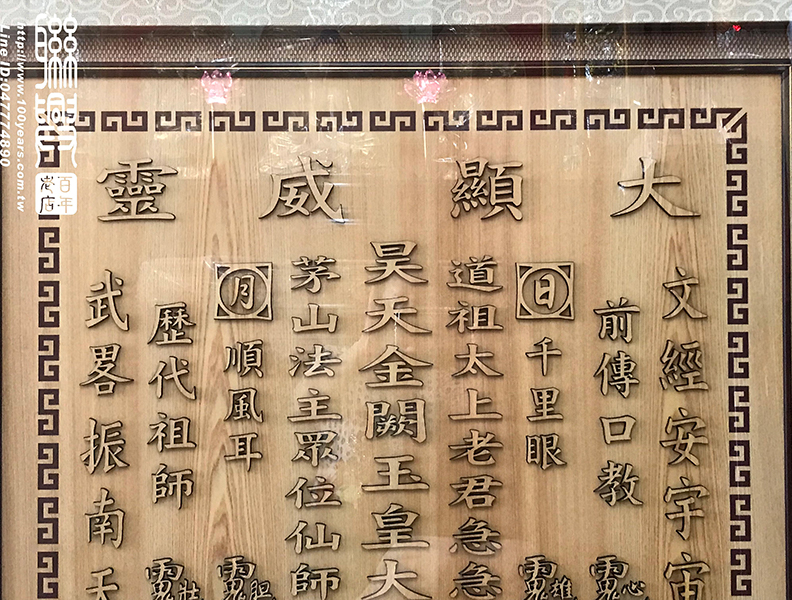 大顯威靈
文經安宇宙
前傳口教
日
千里眼
道祖太上老君急急
昊天金闕玉皇大
茅山法主眾位仙師
月
順風耳
歷代祖師
武畧振南天
聯興
百年老店
http://www.100years.com.tw
Line ID:047774890